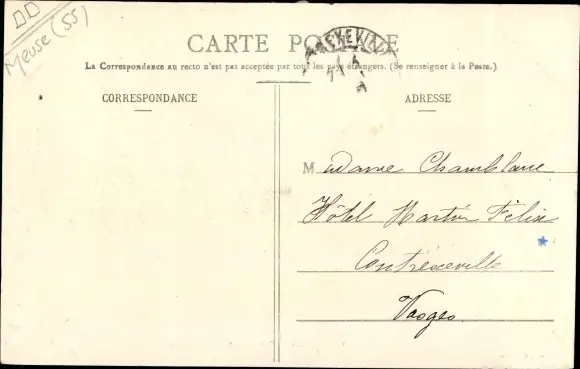 Meuse (55)
CARTE POSTALE
La Correspondance au recto n'est pas acceptée par tous les pays étrangers. (Se renseigner à la Poste.)
CORRESPONDANCE
ADRESSE
Madame Chamblane
Hôtel Martin Félix
Contréxeville
Vosges